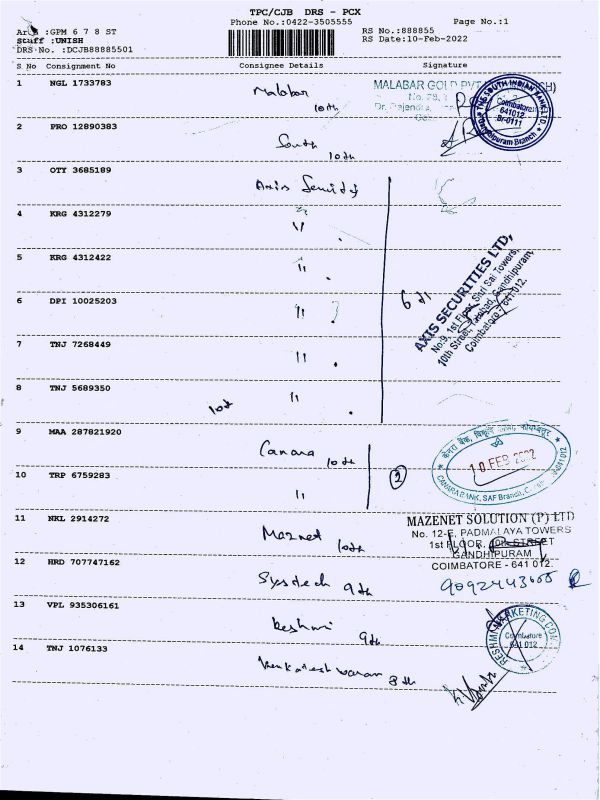 TPC/CJB DRS - PCX
Phone No.:0422-3505555
Page No.:1
:GPM 6 7 8 ST
RS No.:888855
Staff :UNISH
RS Date:10-Feb-2022
DRS No. :DCJB88885501
S No Consignment No Consignee Details Signature
1 NGL 1733783 Malabar
10th
MALABAR GOLD PVT
No.
Dr.
THE SOUTH INDIAN BANK LTD.
Coimbatore
641012
Br-0111
Gandhipuram Branch
2 PRO 12890383 South
10th
3 OTY 3685189 Axis
4 KRG 4312279 "
5 KRG 4312422 "
6 DPI 10025203 "
6
AXIS SECURITIES LTD,
No:9, 1st Floor, Shri Sai Towers,
10th Street, Gandhipuram,
Coimbatore - 641 012.
7 TNJ 7268449 "
8 TNJ 5689350 "
10th
9 MAA 287821920 Canara 10th
केनरा बैंक,
10 FEB 2022
CANARA BANK, SAF Branch,
641 012
10 TRP 6759283 "
2
11 NKL 2914272 Maznet
10th
MAZENET SOLUTION (P) LTD
No. 12-E, PADMALAYA TOWERS
1st FLOOR, STREET
GANDHIPURAM
COIMBATORE - 641 012.
12 HRD 707747162 Systech 9th
13 VPL 935306161 Reshmi
9th
RESHMI MARKETING
Coimbatore
641 012
14 TNJ 1076133 Venkateshwaran 8th